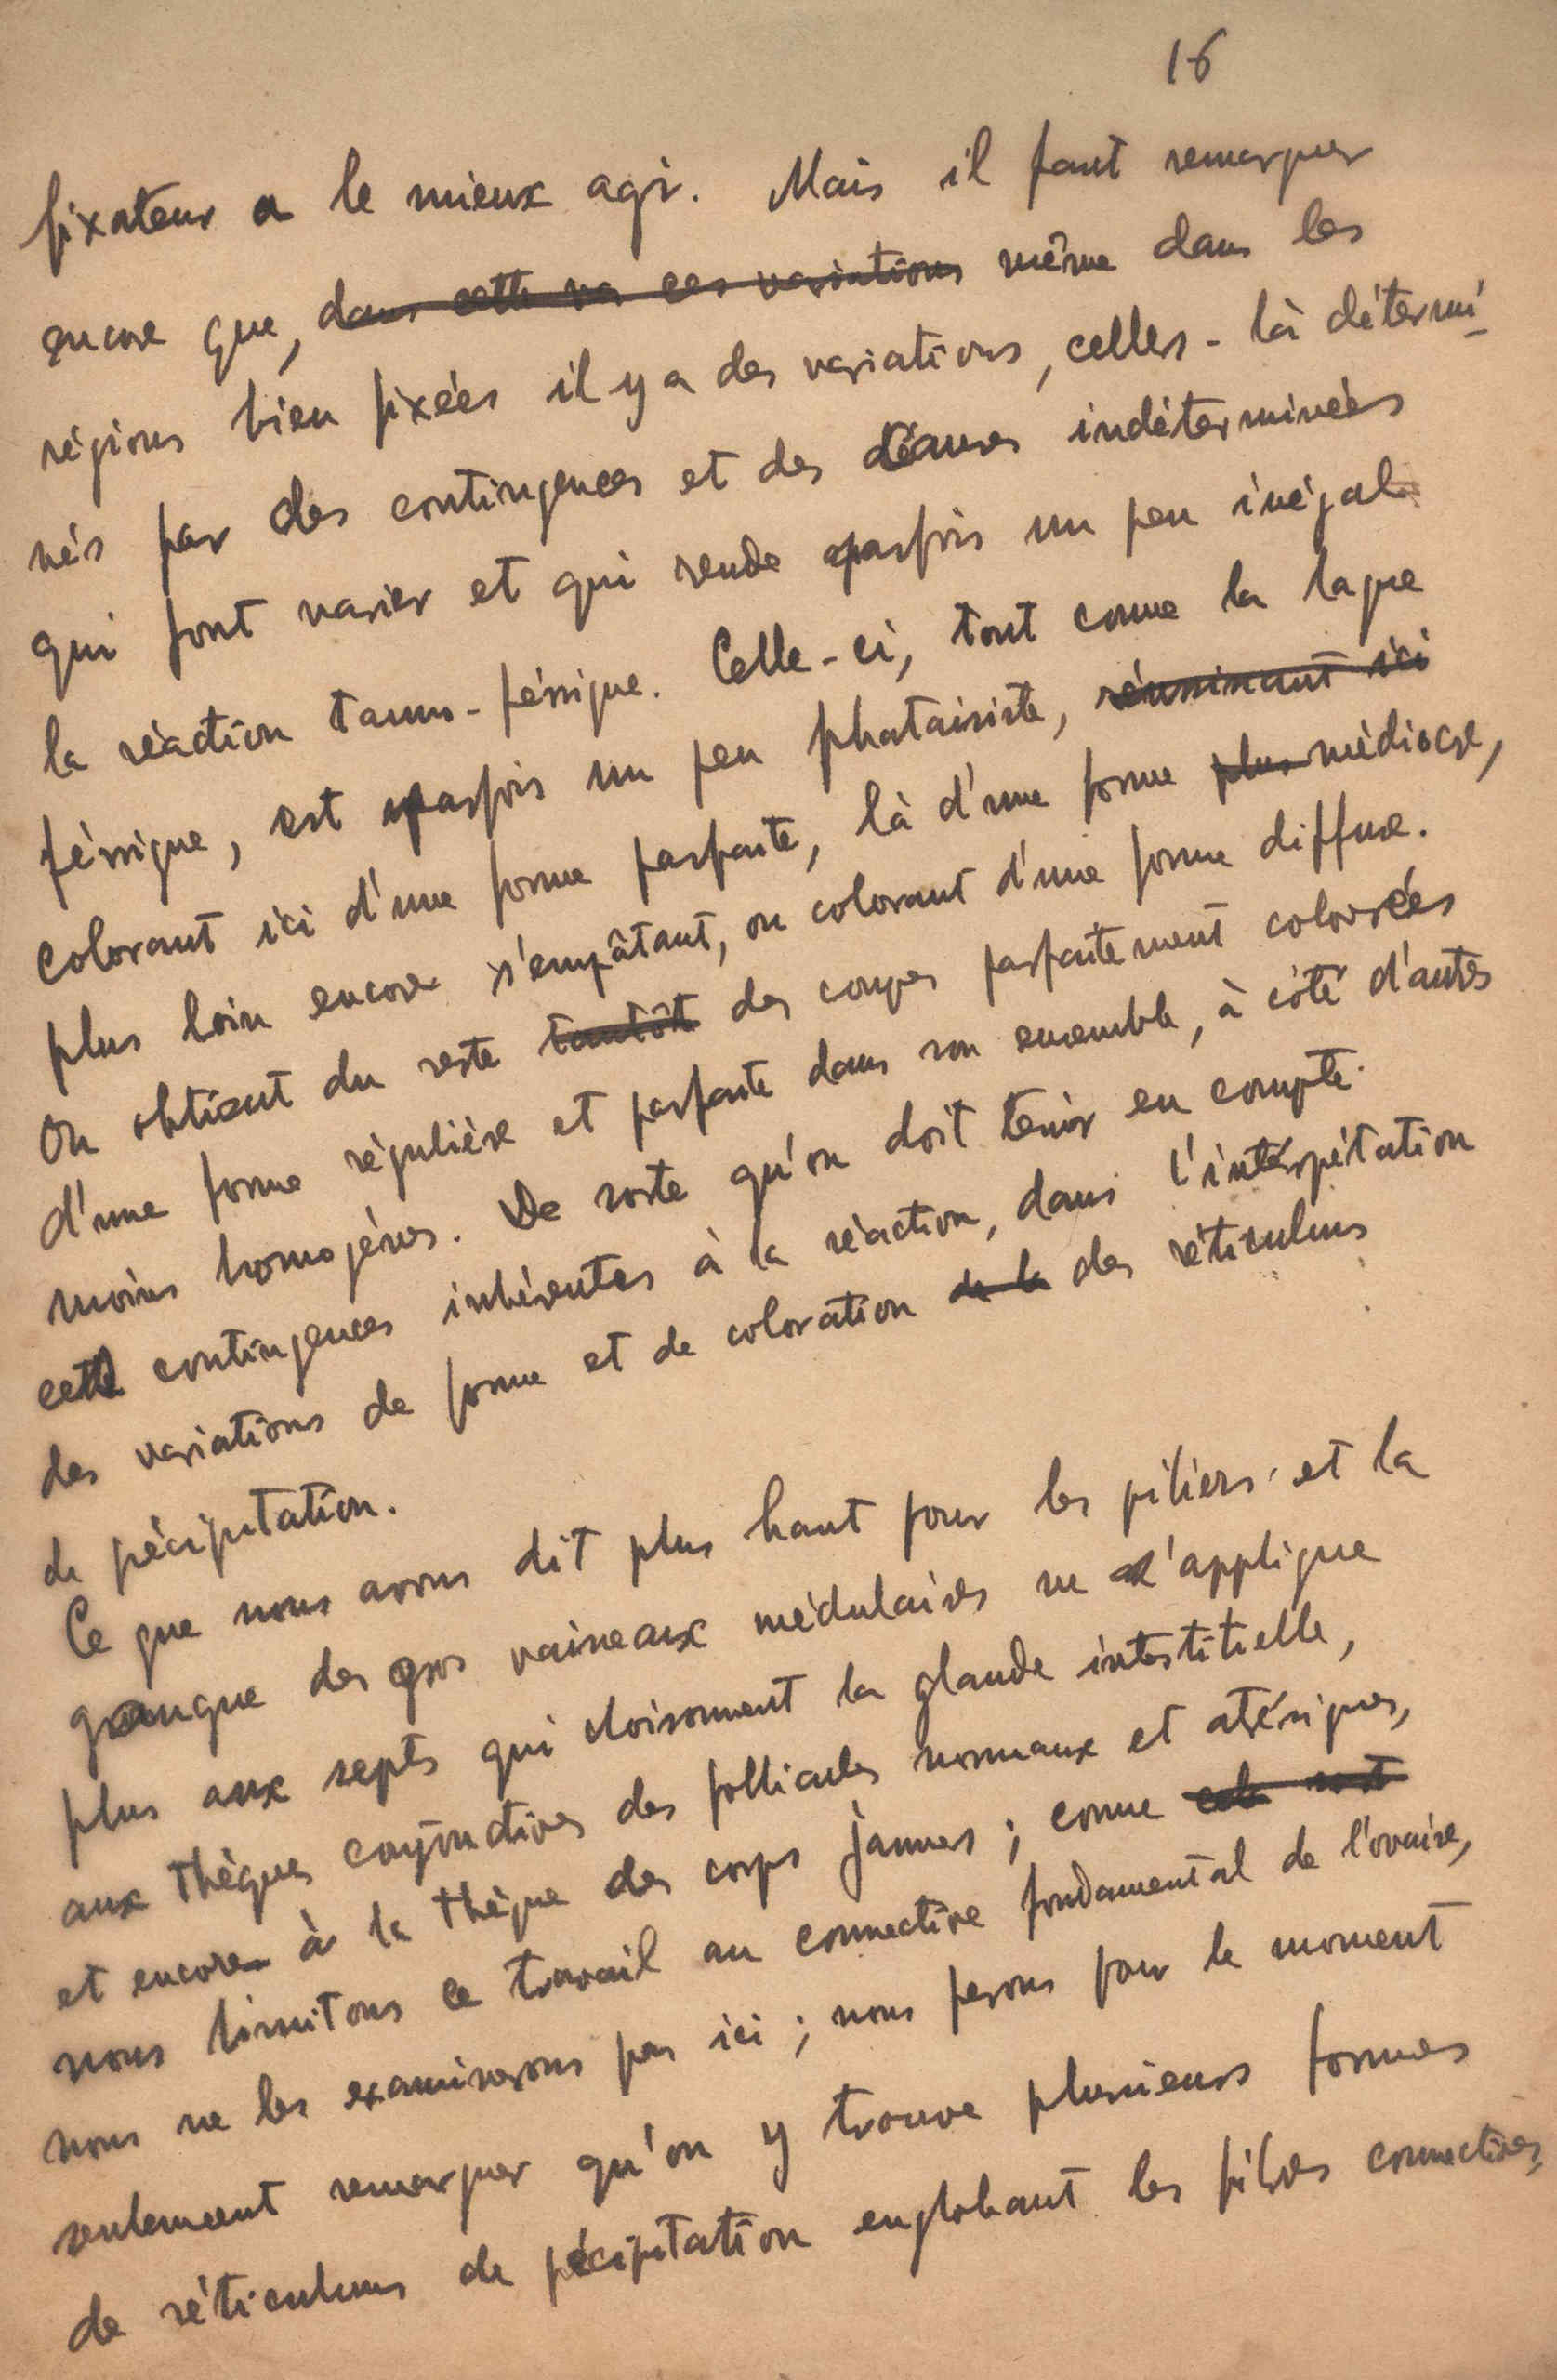 16
fixateur a le mieux agir. Mais il faut remarquer
encore que, dans cette va ces variations même dans les
régions bien fixées il y a des variations, celles-là détermi-
nés par des contingences et des causes indéterminées
qui font varier et qui rende parfois un peu inégal
la réaction tanno-férrique. Celle-ci, tout come la laque
férrique, est parfois un peu phataisiste, réussissant ici
colorant ici d'une forme parfaite, là d'une forme plus médiocre,
plus loin encore s'empâtant, ou colorant d'une forme diffuse.
On obtient du reste tantôt des coupes parfaitement colorées
d'une forme régulière et parfaite dans son ensemble, à côté d'autes
moins homogènes. De sorte qu'on doit tenir en compte
cette contingences inhérentes à la réaction, dans l'interpétation
des variations de forme et de coloration de la des réticulums
de pécipitation.
Ce que nous avons dit plus haut pour les piliers et la
gangue des gros vaiseaux médulaires ne s'applique
plus aux septs qui cloisonnent la glande interstitielle,
aux thèques conjonctives des follicules normaux et atrésiques,
et encore à la thèque des corps jaunes ; come cela sort
nous limitons ce travail au connective fondamental de l'ovaire,
nous ne les examinerons pas ici ; nous ferons pour le moment
seulement remarquer qu'on y trouve plusieurs formes
de réticulums de pécipitation englobant les fibres connectives,